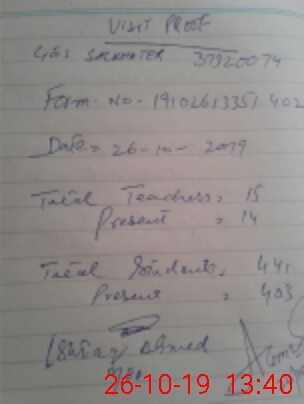 VISIT PROOF
GES 37320074
Form-No-19102613351402
Date= 26-10-2019
Total Teachers= 15
Present = 14
Total Students= 441
Present = 403
Ishtiaq Ahmed
MEA
26-10-19 13:40